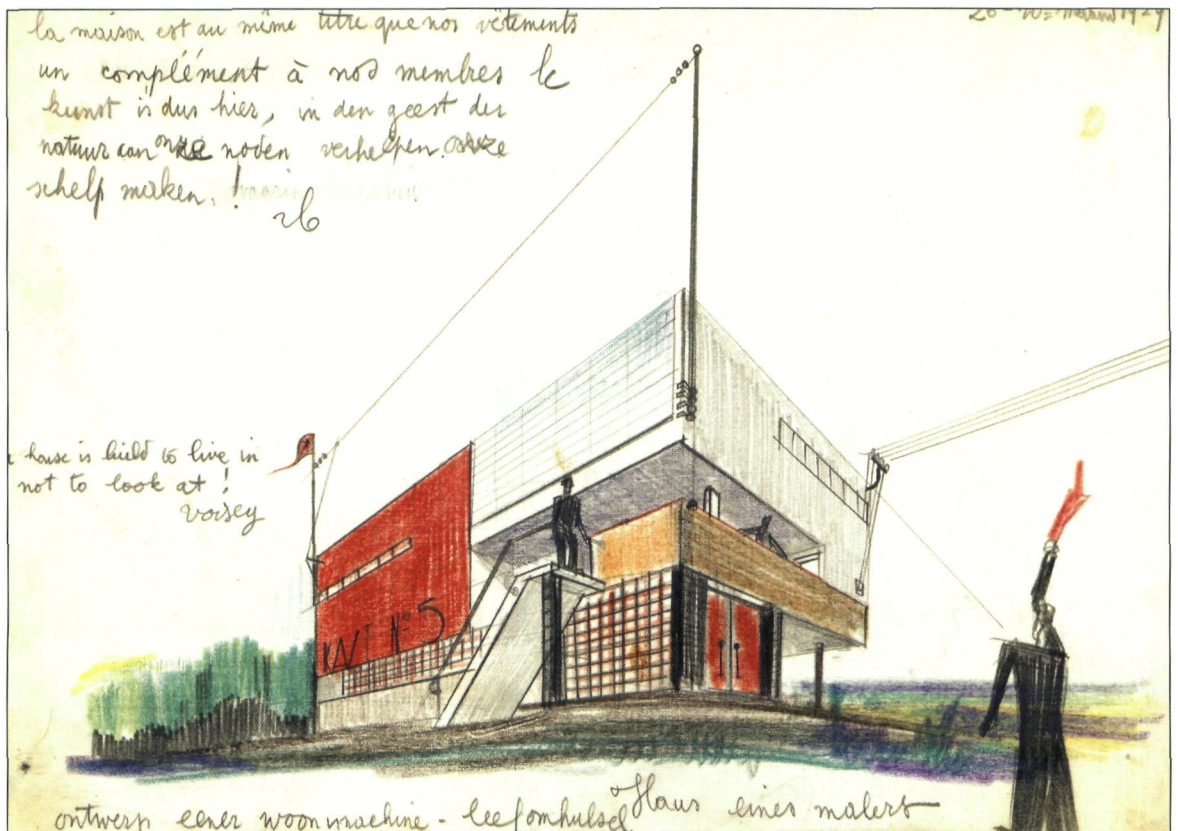 la maison est au même titre que nos vêtements
un complément à nos membres lc
kunst is dus hier, in den geest der
natuur aan onze noden verhelpen. onze
schelp maken.!
1929
house is build to live in
not to look at !
voisey
KNT N° 5
ontwerp eener woonmachine - leefomhulsel
Haus eines malers